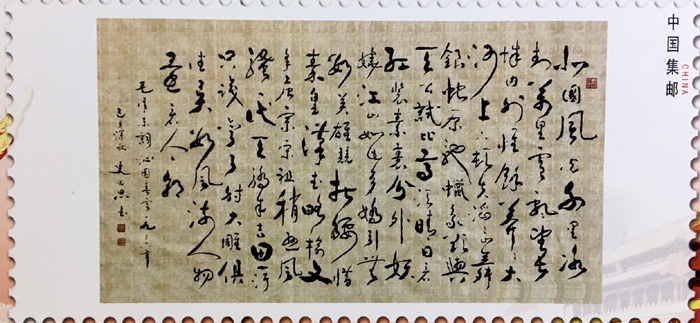 北国风光千里冰
封万里雪飘望长
城内外惟余莽莽大
河上下顿失滔滔山舞
银蛇原驰蜡象欲与
天公试比高须晴日看
红装素裹分外妖
娆江山如此多娇引无
数英雄竞折腰惜
秦皇汉武略输文
采唐宗宋祖稍逊风
骚一代天骄成吉思汗
只识弯弓射大雕俱
往矣数风流人物
还看今朝
毛泽东词沁园春雪一九三六年
己亥深秋 书
中国集邮
CHINA